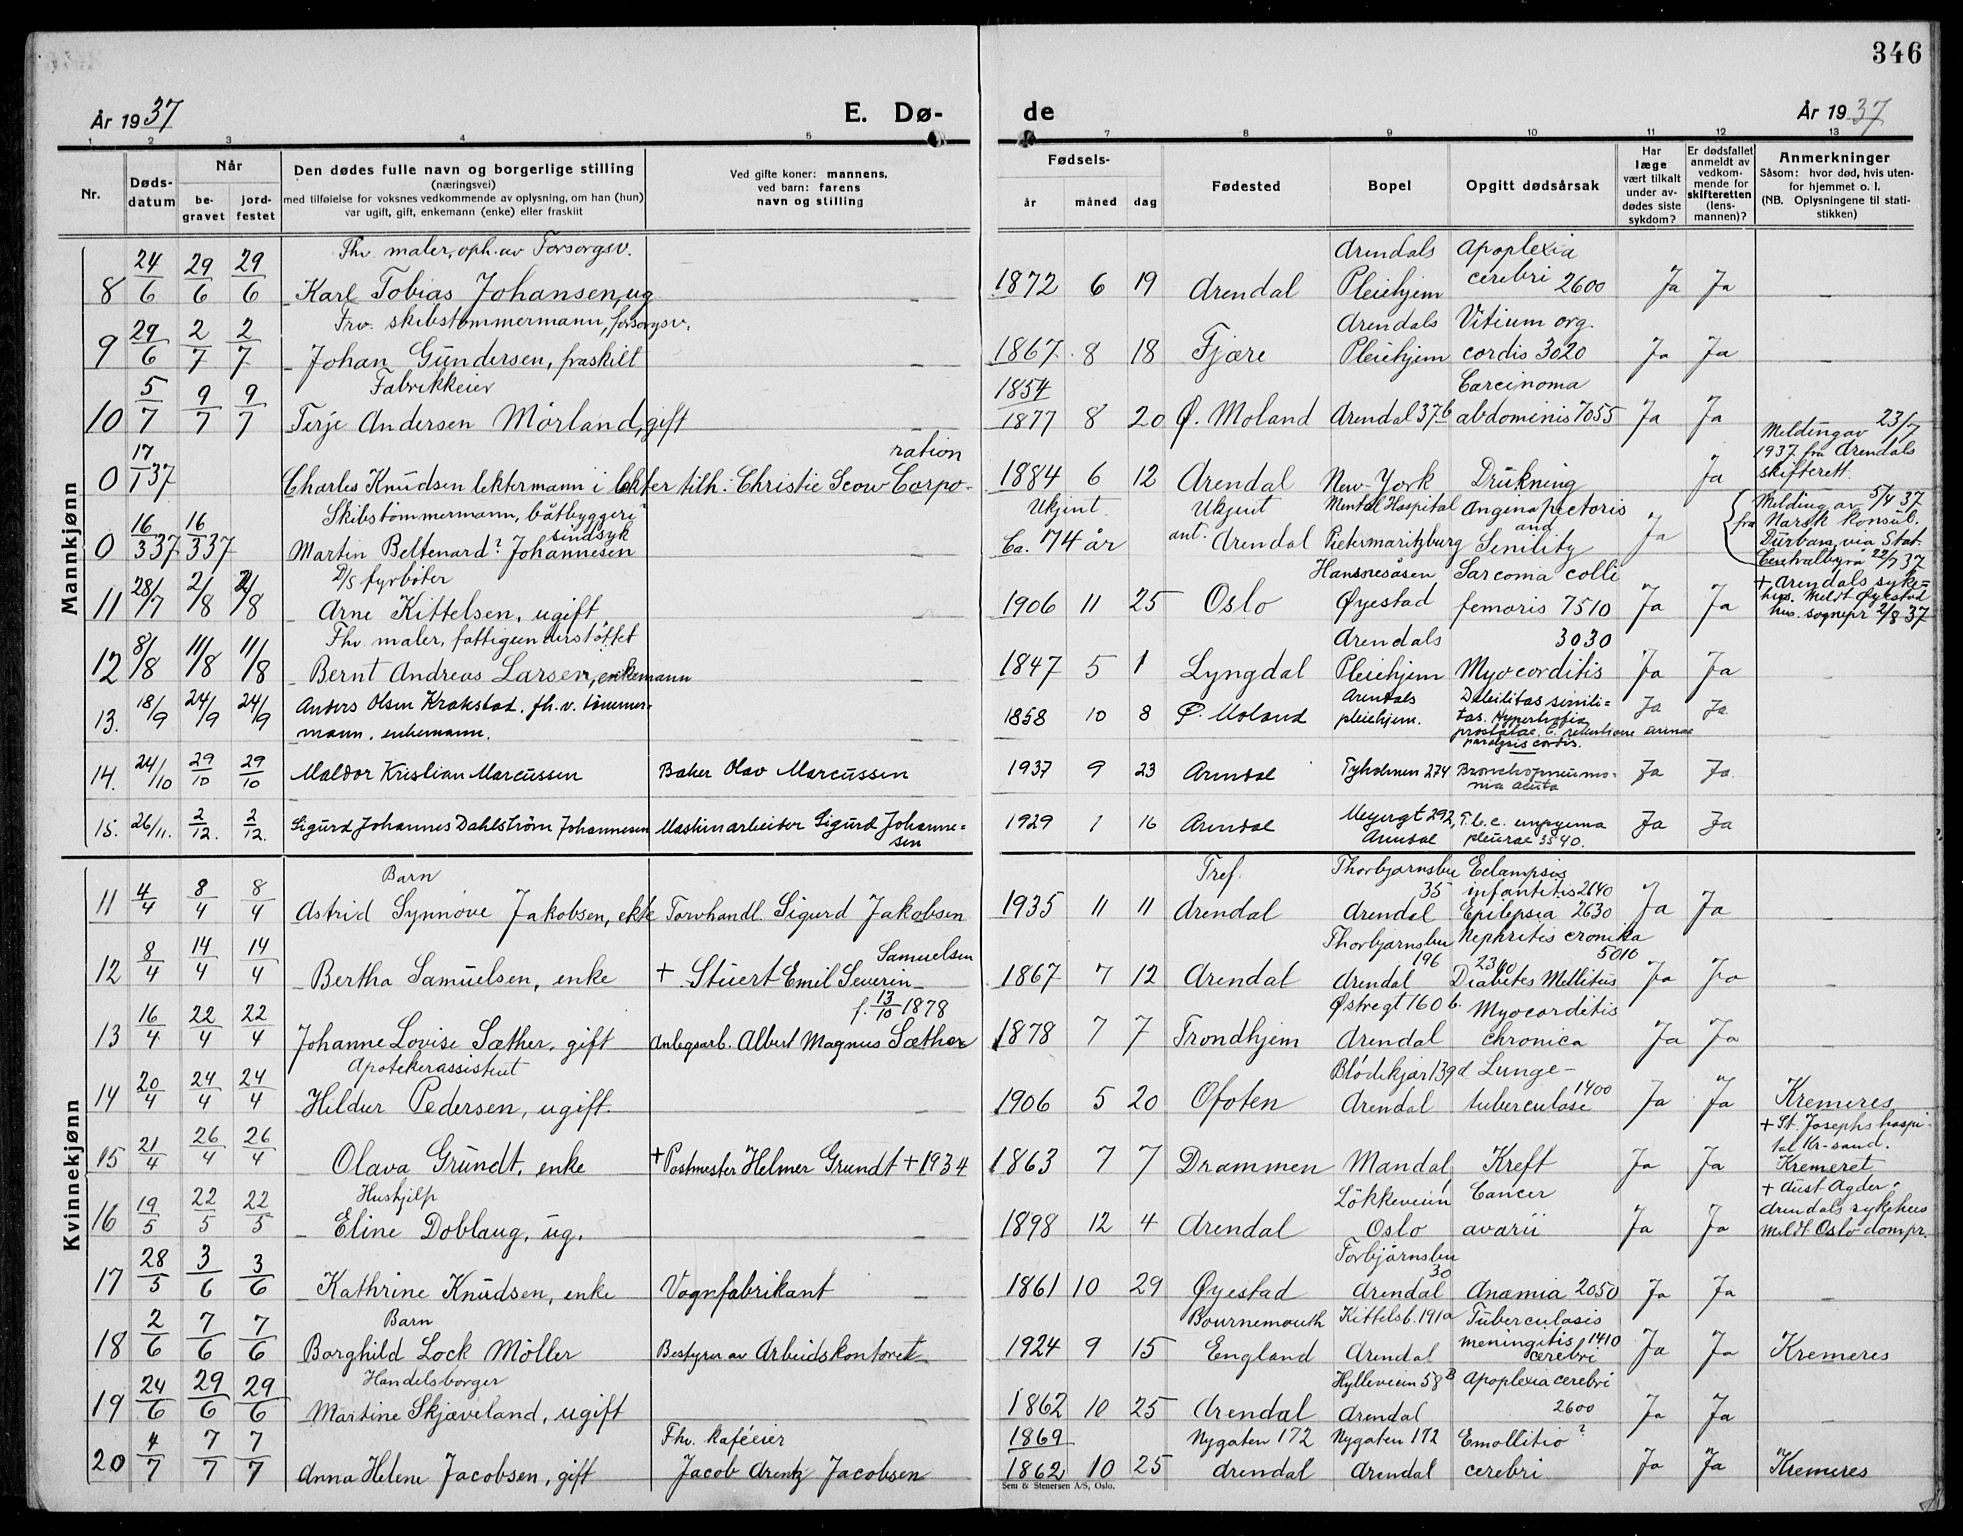 346
År 1937 E. Dø- de År 1937
1 2 3 4 5 7 8 9 10 11 12 13
Nr. Døds-datum Når be-gravet jord-festet Den dødes fulle navn og borgerlige stilling (næringsvei) med tilføielse for voksnes vedkommende av oplysning, om han (hun) var ugift, gift, enkemann (enke) eller fraskilt Ved gifte koner: mannens, ved barn: farens navn og stilling Fødsels- år måned dag Fødested Bopel Opgitt dødsårsak Har læge vært tilkalt under av-dødes siste sykdom? Er dødsfallet anmeldt av vedkom-mende for skifteretten (lens-mannen)? Anmerkninger Såsom: hvor død, hvis uten-for hjemmet o. l. (NB. Oplysningene til stati-stikken)
Mannkjønn
Fhv. maler, oph. av Forsorgsv. Arendals Apoplexia
8 24/6 29/6 29/6 Karl Tobias Johansen, ug — 1872 6 19 Arendal Pleiehjem cerebri 2600 Ja Ja —
Frv. skibstømmermann, forsorgsv. Arendals Vitium org.
9 29/6 2/7 2/7 Johan Gundersen, fraskilt — 1867 8 18 Fjære Pleiehjem cordis 3020 Ja Ja —
Fabrikkeier 1854 Carcinoma
10 5/7 9/7 9/7 Terje Andersen Mörland, gift 1877 8 20 Ø. Moland Arendal 37b abdominis 7055 Ja Ja
ration Melding av 23/7 1937 fra Arendals skifterett.
0 17/1 37 Charles Knudsen lektermann i lekter tilh. Christie Scow Corpo- 1884 6 12 Arendal New-York Drukning Ja
Skibstømmermann, båtbyggeri? sindsyk Ukjent. Ukjent Mental Hospital Angina pectoris and
0 16/3 37 16/3 37 Martin Beltenard? Johannesen — Ca. 74 år ant. Arendal Pietermaritzburg Senility Ja Melding av 5/4 37 fra Norsk Konsul. Durban, via Stat. Centralbyrå 22/7 37
D/S fyrböter Hansnesåsen Sarcoma colli
11 28/7 2/8 2/8 Arne Kittelsen, ugift — 1906 11 25 Oslo Øyestad femoris 7510 Ja Ja + Arendals syke= hus. Meldt Øyestad hus. sognepr 2/8 37
Fhv. maler, fattigunderstöttet Arendals 3030
12 8/8 11/8 11/8 Bernt Andreas Larsen, enkemann — 1847 5 1 Lyngdal Pleiehjem Myocorditis Ja Ja —
13. 18/9 24/9 24/9 Anders Olsen Krakstad. fh. v. tömmer-mann. enkemann. 1858 10 8 Ø. Moland Arendals pleiehjem. Debilitas senili= tas. Hypertrofia prostatae. C. retentione urinae paralysis cordis. Ja Ja —
14. 24/10 29/10 29/10 Maldor Kristian Marcussen Baker Olav Marcussen 1937 9 23 Arendal Tyholmen 274 Bronchopneumo-nia acuta Ja Ja.
15. 26/11. 2/12. 2/12. Sigurd Johannes Dahlström Johannesen Maskinarbeider Sigurd Johanne=sen 1929 1 16 Arendal Meyergt 292, Arendal T.b.c. empyema pleurae 3540. Ja Ja
Kvinnekjønn
Barn Tref. Thorbjørnsbu 35 Eclampsis infantitis 2640
11 4/4 8/4 8/4 Astrid Synnöve Jakobsen, ekte Torvhandl. Sigurd Jakobsen 1935 11 11 Arendal Arendal Epilepsia 2630 Ja Ja —
Samuelsen Thorbjørnsbu 196 Nephritis cronika 5010
12 8/4 14/4 14/4 Bertha Samuelsen, enke + Stuert Emil Severin 1867 7 12 Arendal Arendal 2340 Diabetes Mellitus Ja Ja —
f. 13/10 1878 Østregt 160 b. Myocorditis
13 16/4 22/4 22/4 Johanne Lovise Sæther, gift Anlegsarb. Albert Magnus Sæther 1878 7 7 Trondhjem Arendal chronica Ja Ja —
Apotekerassistent Blödekjær 139 d Lunge-
14 20/4 24/4 24/4 Hildur Pedersen, ugift. — 1906 5 20 Ofoten Arendal tuberculose 1400 Ja Ja Kremeres
15 21/4 26/4 26/4 Olava Grundt, enke + Postmester Helmer Grundt + 1934 1863 7 7 Drammen Mandal Kreft Ja Ja + St. Josephs hospi-tal Kr-sand. Kremeret
Hushjelp Lökkeveien Cancer
16 19/5 22/5 22/5 Eline Doblaug, ug. — 1898 12 4 Arendal Oslo avarii Ja Ja + Aust Agder- Arendals sykehus Meldt Oslo dompr.
Torbjörnsbu 30
17 28/5 3/6 3/6 Kathrine Knudsen, enke Vognfabrikant 1861 10 29 Øyestad Arendal Anæmia 2050 Ja Ja —
Barn Bournemouth Kittelsb. 191a Tuberculosis
18 2/6 7/6 7/6 Borghild Lock Möller Bestyrer av Arbeidskontoret 1924 9 15 England Arendal meningitis 1410 cerebri Ja Ja Kremeres
Handelsborger Hylleveien 58B Apoplexia cerebri
19 24/6 29/6 29/6 Martine Skjæveland, ugift — 1862 10 25 Arendal Arendal 2600 Ja Ja —
Fhv. kaféeier 1869 Nygaten 172 Nygaten 172 Emollitio?
20 4/7 7/7 7/7 Anna Helene Jacobsen, gift Jacob Arentz Jacobsen 1862 10 25 Arendal Arendal cerebri Ja Ja Kremeres
Sem & Stenersen A/S, Oslo.